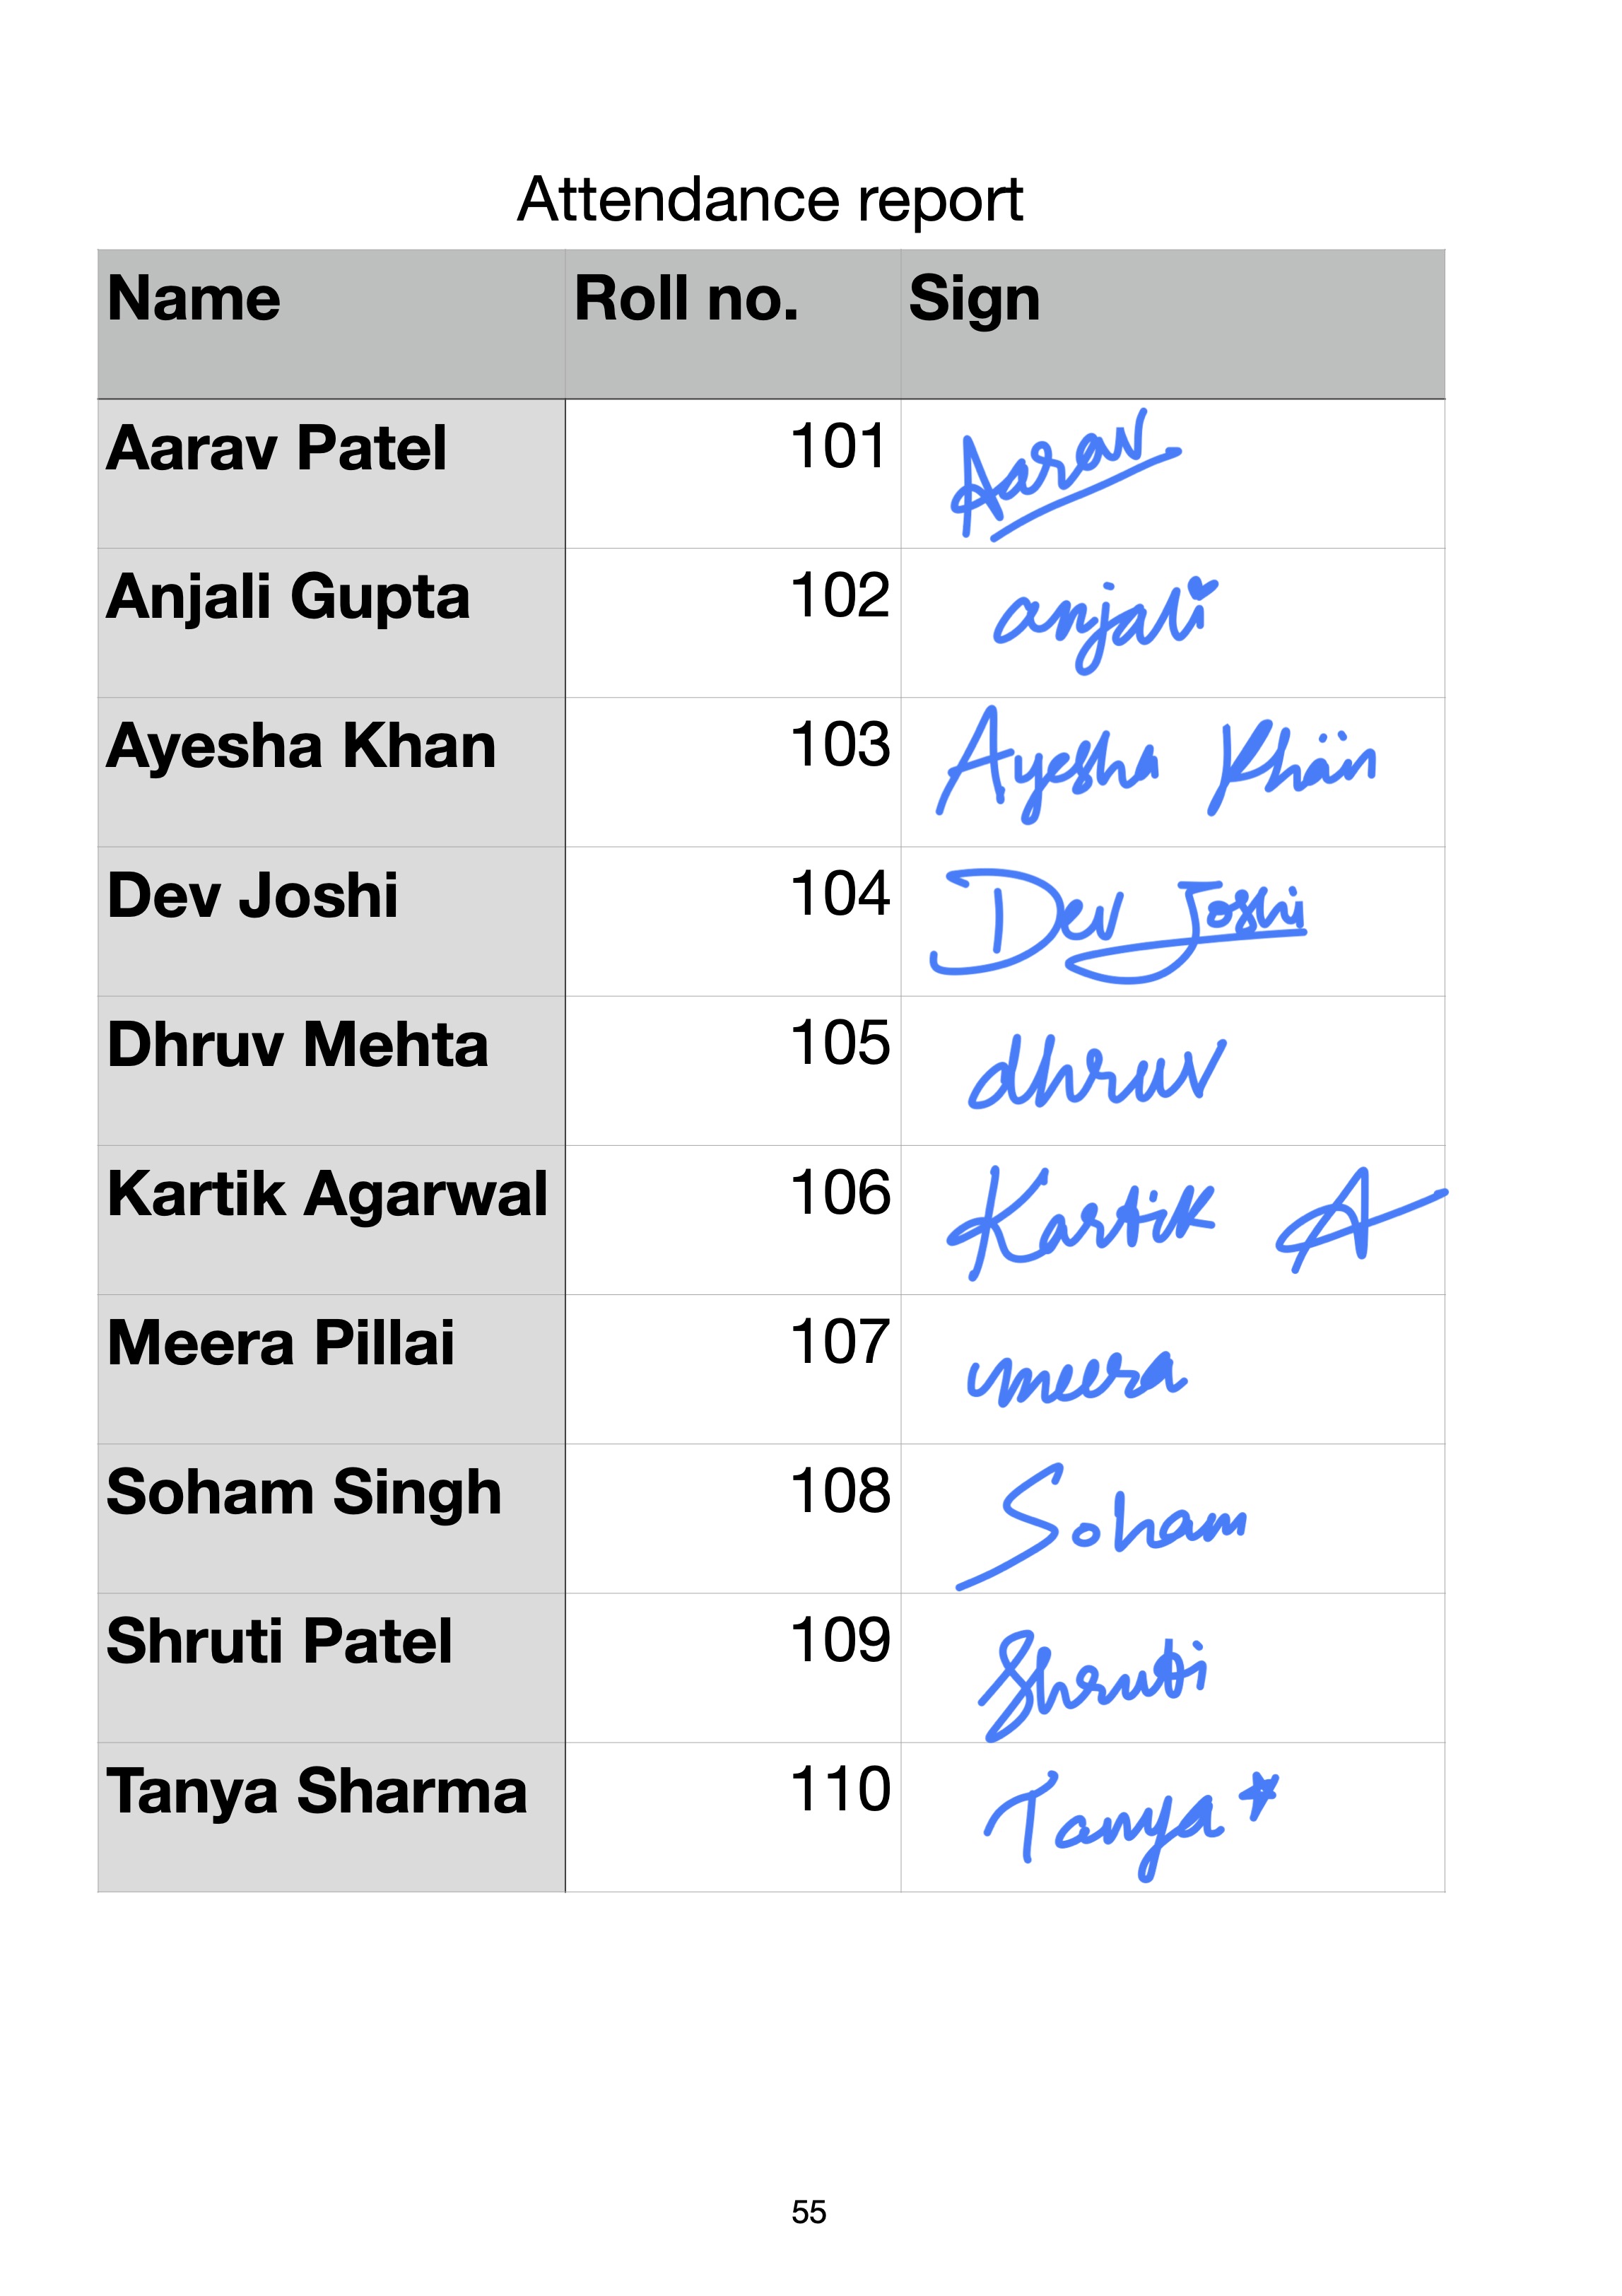 Attendance report
Name Roll no. Sign
Aarav Patel 101 Aarav
Anjali Gupta 102 anjali
Ayesha Khan 103 Ayesha Khan
Dev Joshi 104 Dev Joshi
Dhruv Mehta 105 dhruv
Kartik Agarwal 106 Kartik A
Meera Pillai 107 meera
Soham Singh 108 Soham
Shruti Patel 109 Shruti
Tanya Sharma 110 Tanya*
55